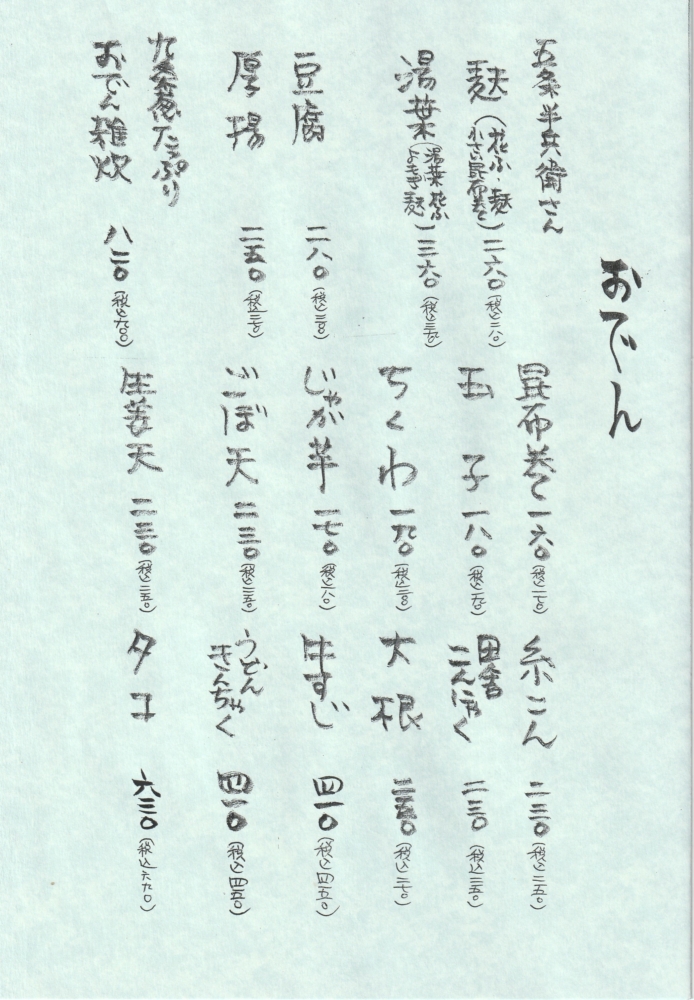 おでん
五条半兵衛さん
麩（花ふ・麩 小さい昆布巻き）二六〇（税込二八〇）
湯葉（湯葉 花ふ よもぎ麩）三六〇（税込三九〇）
豆腐 二八〇（税込三〇〇）
厚揚 二五〇（税込二七〇）
九条葱たっぷり
おでん雑炊 八二〇（税込九〇〇）
昆布巻き 一六〇（税込一七〇）
玉子 一八〇（税込一九〇）
ちくわ 一九〇（税込二一〇）
じゃが芋 一七〇（税込一八〇）
ごぼ天 二三〇（税込二五〇）
生姜天 二三〇（税込二五〇）
糸こん 二三〇（税込二五〇）
田舎こんにゃく 二三〇（税込二五〇）
大根（税込二七〇）
牛すじ 四一〇（税込四五〇）
うどんきんちゃく 四一〇（税込四五〇）
タコ 六三〇（税込六九〇）